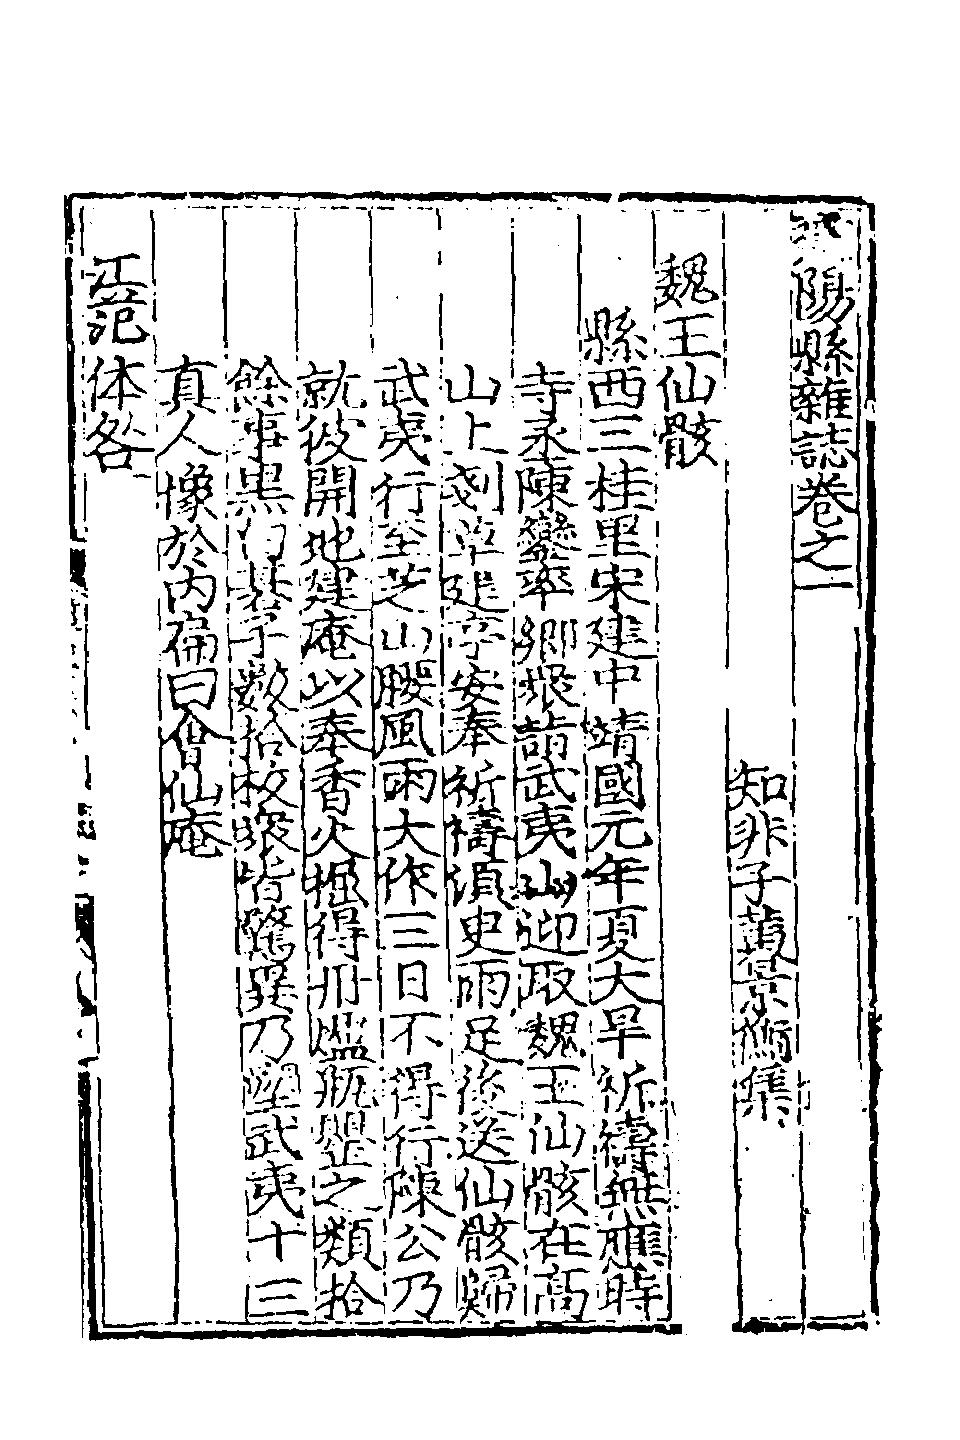 陽縣雜誌卷之一
知非子黃景集
魏王仙骸
縣西三桂里宋建中靖國元年夏大旱祈禱無應時
寺丞陳率鄉詣武夷山迎取魏王仙骸在高
山上刻草建亭安奉祈禱須史雨足後送仙骸歸
武夷行至芝山腰風雨大作三日不得行陳公乃
就彼開地建庵以奉香火掘得瓶罌之類拾
餘事黑白碁子數拾枚眾皆驚異乃塑武夷十三
真人像於內扁曰會仙庵
江範体咎